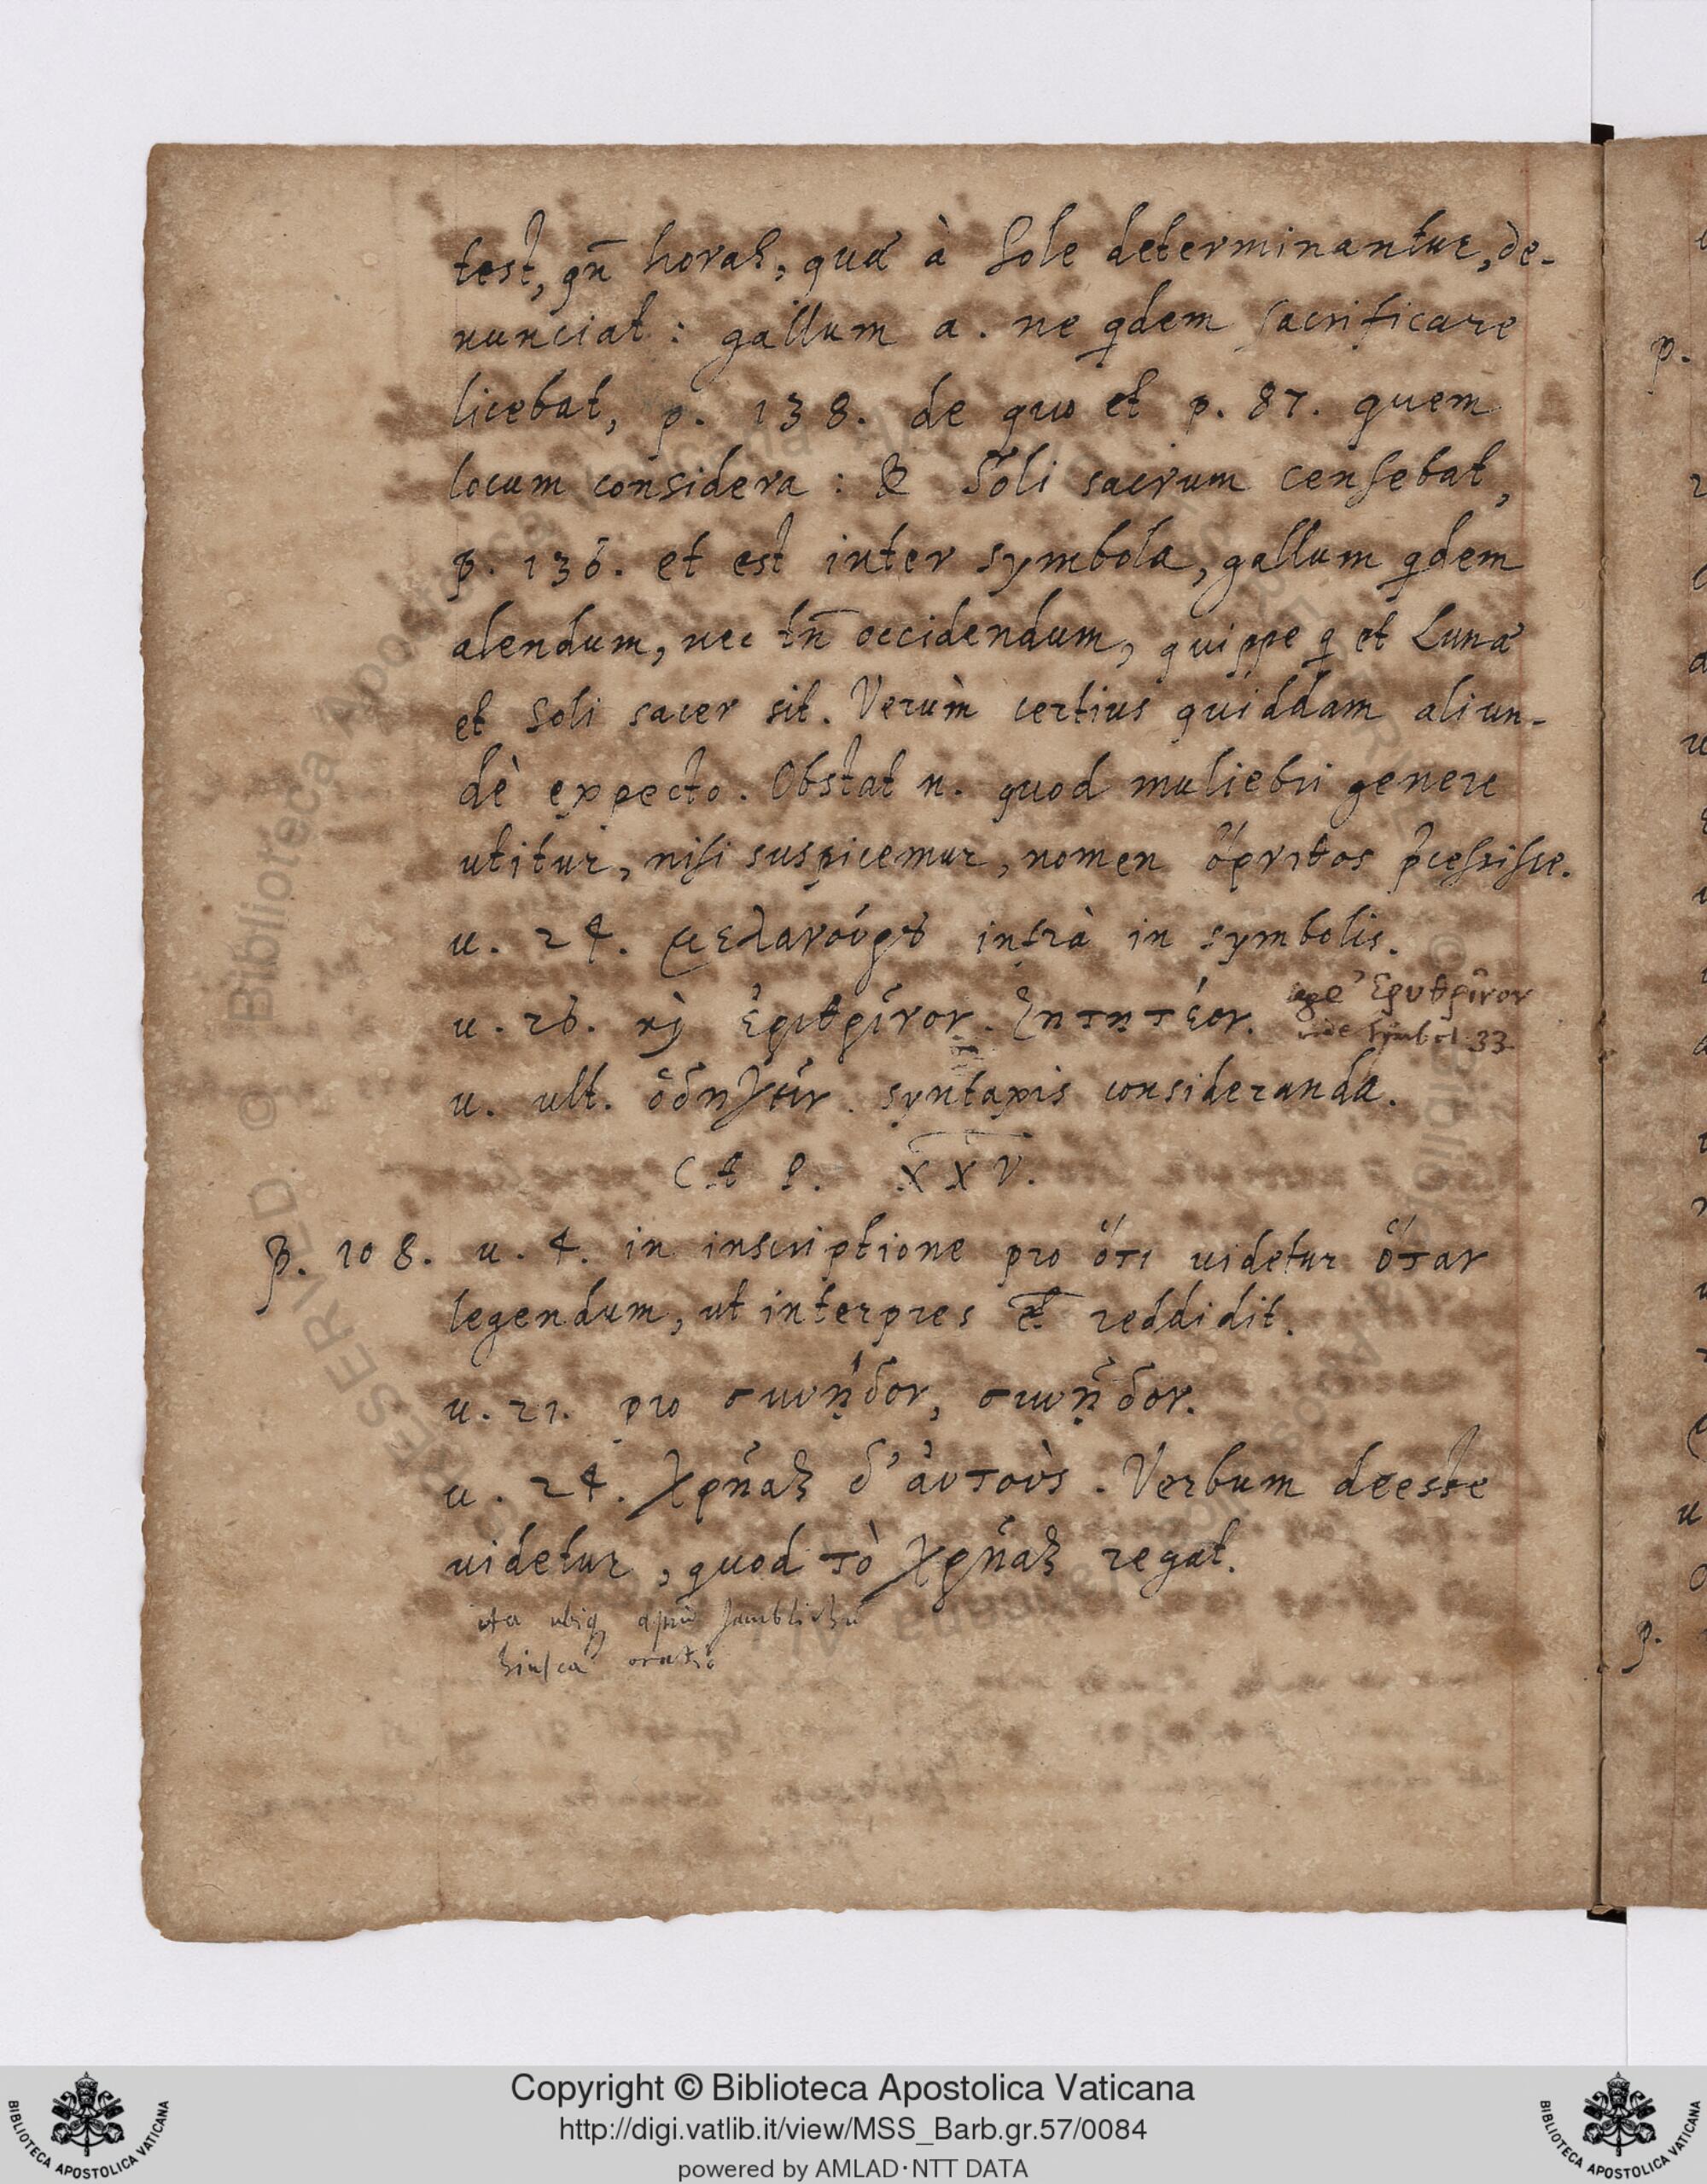 test, qn̄ horas, quæ à Sole determinantur, de-
nunciat: gallum a. ne qdem sacrificare
licebat, p. 138. de quo et p. 87. quem
locum considera: & Soli sacrum censebat,
p. 136. et est inter symbola, gallum qdem
alendum, nec tn̄ occidendum, quippe q et Lunæ
et Soli sacer sit. Verùm certius quiddam aliun-
dè expecto. Obstat n. quod muliebri genere
utitur, nisi suspicemur, nomen ὄρνιθος
u. 24. μελανούρȣ infrà in symbolis.
u. 26. ϗ̀ ἐριθρῖνον. ζητητέον. ἐρυθρῖνον
vide Symbol. 33
u. ult. syntaxis consideranda.
CAP. XXV.
p. 108. u. 4. in inscriptione pro ὅτι uidetur ὅταν
legendum, ut interpres et reddidit.
u. 21. pro σπονήδον, σπονῆδον.
u. 24. χρῆσθαι δ' ἀυτοὺς. Verbum deesse
uidetur, quod τὸ χρῆσθαι regat.
ita ubiq apud Jamblichū
hiulca oratio
Copyright © Biblioteca Apostolica Vaticana
http://digi.vatlib.it/view/MSS_Barb.gr.57/0084
powered by AMLAD·NTT DATA